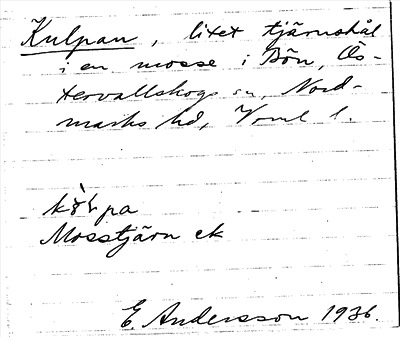 Kulpan, litet tjärnshål
i en mosse i Bön, Ös-
tervallskogs sn, Nord-
marks hd, Vrml l.
pa
Mosstjärn ek
E. Andersson 1936.